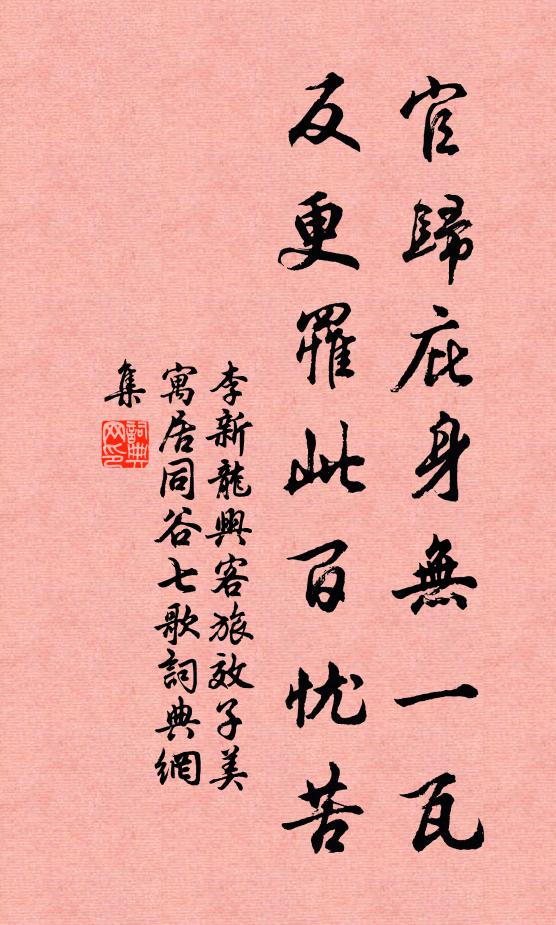 官歸庇身無一瓦
反更罹此百忧苦
李新龍興客旅效子美
寓居同谷七歌詞典網
集
詞典網印